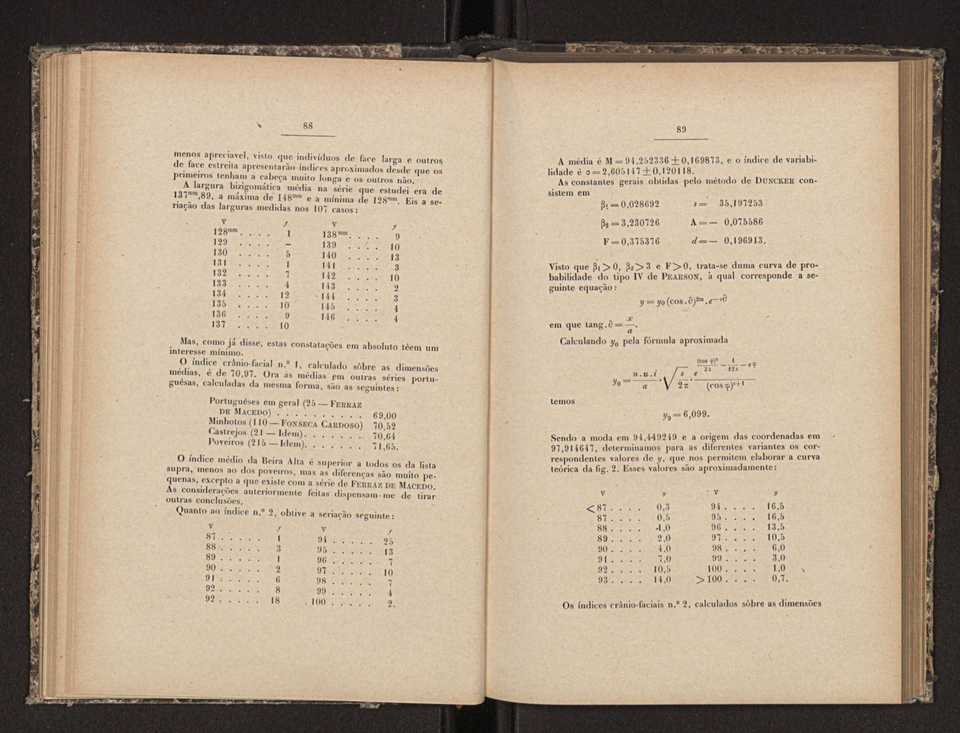 88
menos apreciavel, visto que indivíduos de face larga e outros
de face estreita apresentarão índices aproximados desde que os
primeiros tenham a cabeça muito longa e os outros não.
A largura bizigomática média na série que estudei era de
137mm,89, a máxima de 148mm e a mínima de 128mm. Eis a se-
riação das larguras medidas nos 107 casos:
V f V f
128mm. . . . 1 138mm. . . . 9
129 . . . . – 139 . . . . 10
130 . . . . 5 140 . . . . 13
131 . . . . 1 141 . . . . 3
132 . . . . 7 142 . . . . 10
133 . . . . 4 143 . . . . 2
134 . . . . 12 144 . . . . 3
135 . . . . 10 145 . . . . 4
136 . . . . 9 146 . . . . 4
137 . . . . 10
Mas, como já disse, estas constatações em absoluto têem um
interesse mínimo.
O índice crânio-facial n.º 1, calculado sôbre as dimensões
médias, é de 70,97. Ora as médias em outras séries portu-
guêsas, calculadas da mesma forma, são as seguintes:
Portuguêses em geral (25 — FERRAZ
DE MACEDO) . . . . . . . . . . 69,00
Minhotos (110 — FONSECA CARDOSO) 70,52
Castrejos (21 — Idem). . . . . . . 70,64
Poveiros (215 — Idem). . . . . . . 71,65.
O índice médio da Beira Alta é superior a todos os da lista
supra, menos ao dos poveiros, mas as diferenças são muito pe-
quenas, excepto a que existe com a série de FERRAZ DE MACEDO.
As considerações anteriormente feitas dispensam-me de tirar
outras conclusões.
Quanto ao índice n.º 2, obtive a seriação seguinte:
V f V f
87 . . . . . 1 94 . . . . . 25
88 . . . . . 3 95 . . . . . 13
89 . . . . . 1 96 . . . . . 7
90 . . . . . 2 97 . . . . . 10
91 . . . . . 6 98 . . . . . 7
92 . . . . . 8 99 . . . . . 4
92 . . . . . 18 100 . . . . . 2.
89
A média é M = 94,252336 ± 0,169873, e o índice de variabi-
lidade é σ = 2,605147 ± 0,120118.
As constantes gerais obtidas pelo método de DUNCKER con-
sistem em
β1 = 0,028692 s = 35,197253
β2 = 3,230726 A = — 0,075586
F = 0,375376 d = — 0,196913.
Visto que β1 > 0, β2 > 3 e F > 0, trata-se duma curva de pro-
babilidade do tipo IV de PEARSON, à qual corresponde a se-
guinte equação:
y = y0 (cos. ∂)2m . e—ν∂
em que tang. ∂ = x/a.
Calculando y0 pela fórmula aproximada
y0 = n.u.i/a . √ s/2π . e (cos φ)²/3s — 1/12s — νφ / (cos φ)s+1
temos
y0 = 6,099.
Sendo a moda em 94,449249 e a origem das coordenadas em
97,914647, determinamos para as diferentes variantes os cor-
respondentes valores de y, que nos permitem elaborar a curva
teórica da fig. 2. Esses valores são aproximadamente:
V y V y
<87 . . . . 0,3 94 . . . . 16,5
87 . . . . 0,5 95 . . . . 16,5
88 . . . . 1,0 96 . . . . 13,5
89 . . . . 2,0 97 . . . . 10,5
90 . . . . 4,0 98 . . . . 6,0
91 . . . . 7,0 99 . . . . 3,0
92 . . . . 10,5 100 . . . . 1,0
93 . . . . 14,0 >100 . . . . 0,7.
Os índices crânio-faciais n.º 2, calculados sôbre as dimensões